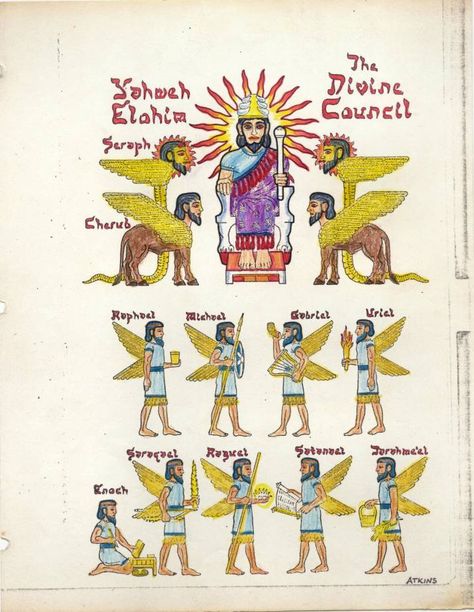 Yahweh
Elohim
The
Divine
Council
Seraph
Cherub
Raphael
Michael
Gabriel
Uriel
Saraqael
Raguel
Satanael
Jarahme'el
Enoch
ATKINS